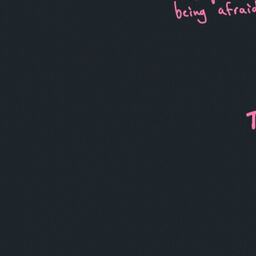 being afraid
T